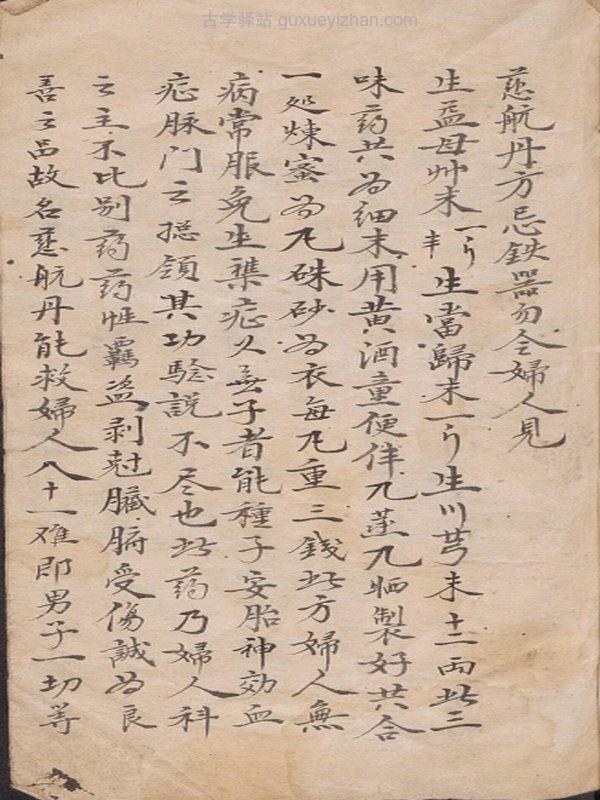 古学驿站 guxueyizhan.com
慈航丹方忌鉄器勿令婦人見
生益母艸末一斤半生當歸末一斤生川芎末十二両此三
味药共為細末用黄酒童便伴九蒸九晒製好共合
一処煉蜜為丸硃砂為衣每丸重三錢此方婦人無
病常服免生襍症久無子者能種子安胎神効血
症脉門之総領其功騐説不尽也此药乃婦人科
之主不比别药药性霸盗剥尅臟腑受傷誠為良
善之品故名慈航丹能救婦人八十一难即男子一切等